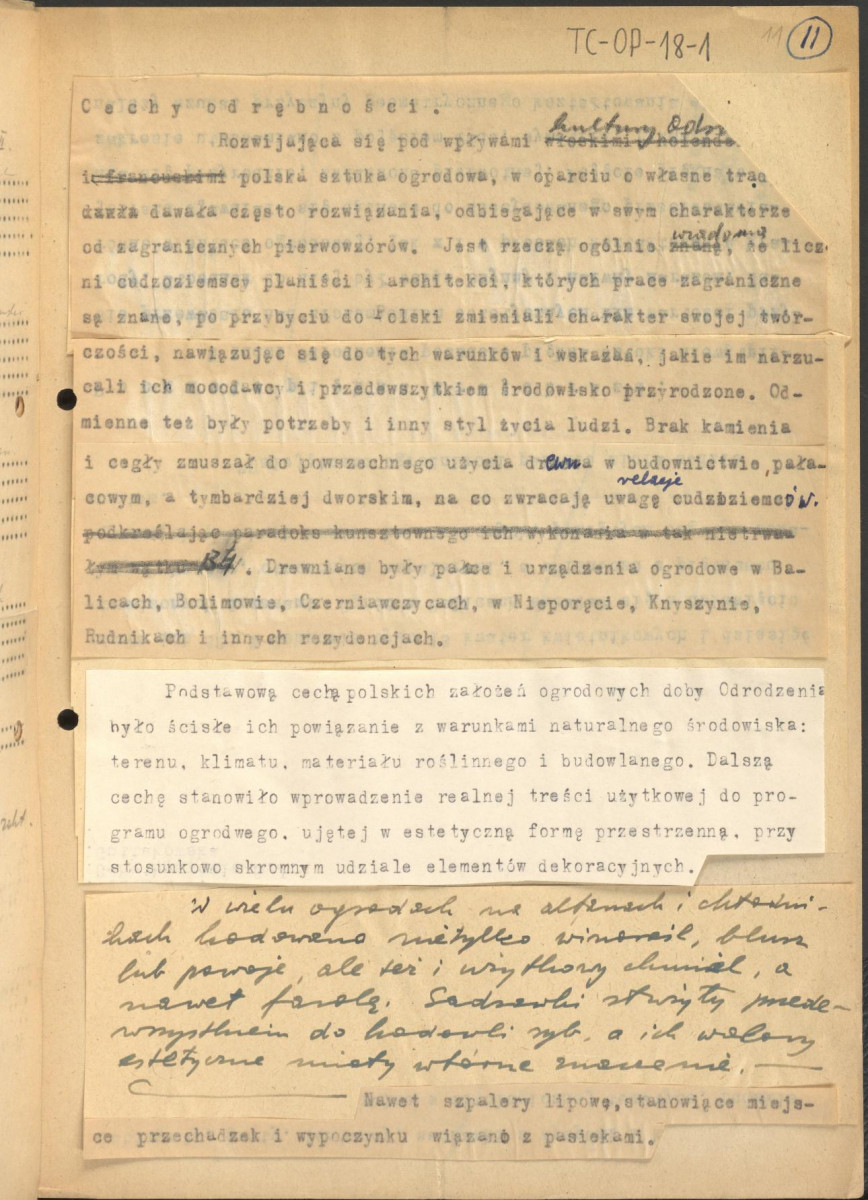 TC-OP-18-1
11 11
Cechy odrębności.
kultury Odr
Rozwijająca się pod wpływami włoskimi, holende
i francuskimi polska sztuka ogrodowa, w oparciu o własne trad
dawła dawała często rozwiązania, odbiegające w swym charakterze
wiadomą
od zagranicznych pierwowzórów. Jest rzeczą ogólnie znaną, że licz-
ni cudzoziemscy planiści i architekci, których prace zagraniczne
są znane, po przybyciu do Polski zmieniali charakter swojej twór-
czości, nawiązując się do tych warunków i wskazań, jakie im narzu-
cali ich mocodawcy i przedewszytkiem środowisko przyrodzone. Od-
mienne też były potrzeby i inny styl życia ludzi. Brak kamienia
i cegły zmuszał do powszechnego użycia drewna w budownictwie pała-
relacje
cowym, a tymbardziej dworskim, na co zwracają uwagę cudzoziemców.
podkreślając paradoks kunsztownego ich wykonania w tak nietrwa
łym wątku B4/. Drewniane były pałce i urządzenia ogrodowe w Ba-
licach, Bolimowie, Czerniawczycach, w Nieporęcie, Knyszynie,
Rudnikach i innych rezydencjach.
Podstawową cechą polskich założeń ogrodowych doby Odrodzenia
było ścisłe ich powiązanie z warunkami naturalnego środowiska:
terenu, klimatu, materiału roślinnego i budowlanego. Dalszą
cechę stanowiło wprowadzenie realnej treści użytkowej do pro-
gramu ogrodwego, ujętej w estetyczną formę przestrzenną, przy
stosunkowo skromnym udziale elementów dekoracyjnych.
W wielu ogrodach na altanach i chłodni-
kach hodowano nietylko winorośl, bluszcz
lub powoje, ale też i użytkowy chmiel, a
nawet fasolę. Sadzawki służyły przede-
wszystkiem do hodowli ryb, a ich walory
estetyczne miały wtórne znaczenie. —
Nawet szpalery lipowę, stanowiące miejs-
ce przechadzek i wypoczynku wiązano z pasiekami.